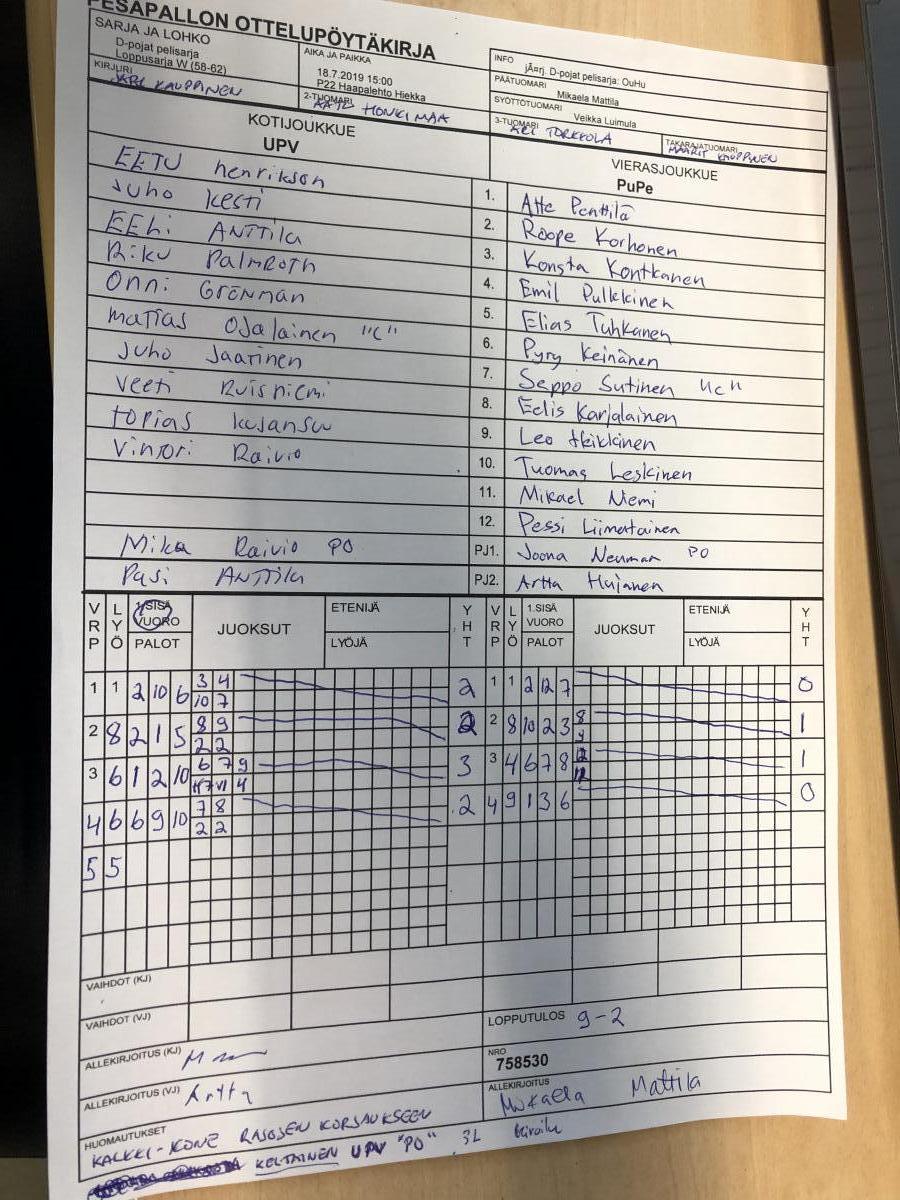 PESÄPALLON OTTELUPÖYTÄKIRJA
SARJA JA LOHKO
D-pojat pelisarja
Loppusarja W (58-62)
AIKA JA PAIKKA
18.7.2019 15:00
P22 Haapalehto Hiekka
INFO
jÃ¤rj. D-pojat pelisarja: OuHu
PÄÄTUOMARI Mikaela Mattila
SYÖTTÖTUOMARI Veikka Luimula
KIRJURI KAUPPINEN
2-TUOMARI HONKIMAA
3-TUOMARI ARI TORKKOLA
TAKARAJATUOMARI MAARIT KAUPPINEN
KOTIJOUKKUE
UPV
VIERASJOUKKUE
PuPe
EETU henrikson 1. Atte Penttilä
Juho Kesti 2. Roope Korhonen
EELi ANTTila 3. Konsta Kontkanen
Riku Palmroth 4. Emil Pulkkinen
Onni Grenman 5. Elias Tuhkanen
matias Ojalainen "C" 6. Pyry Keinänen
Juho Jaarinen 7. Seppo Sutinen "C"
Veeti Ruisniemi 8. Eelis Karjalainen
topias kujansuu 9. Leo Heikkinen
Vintori Raivio 10. Tuomas Leskinen
11. Mikael Niemi
12. Pessi Liimatainen
Mika Raivio PO PJ1. Joona Neuman PO
Pasi ANTTila PJ2. Artta Hujanen
VRP LYÖ 1.SISÄ VUORO PALOT JUOKSUT ETENIJÄ LYÖJÄ YHT VRP LYÖ 1.SISÄ VUORO PALOT JUOKSUT ETENIJÄ LYÖJÄ YHT
1 1 2 10 6 3 4 2 1 1 2 12 7 0
10 7
2 8 2 1 5 8 9 2 2 8 10 2 3 8 1
2 2 9
3 6 1 2 10 6 7 9 3 3 4 6 7 8 12 1
4
4 6 6 9 10 7 8 2 4 9 1 3 6 0
2 2
5 5
VAIHDOT (KJ)
VAIHDOT (VJ)
LOPPUTULOS 9-2
ALLEKIRJOITUS (KJ)
NRO
758530
ALLEKIRJOITUS (VJ) Artta
ALLEKIRJOITUS
Mikaela Mattila
HUOMAUTUKSET
KALKKI-KONE KORJAUKSEEN
KELTAINEN UPV "PO" 3L